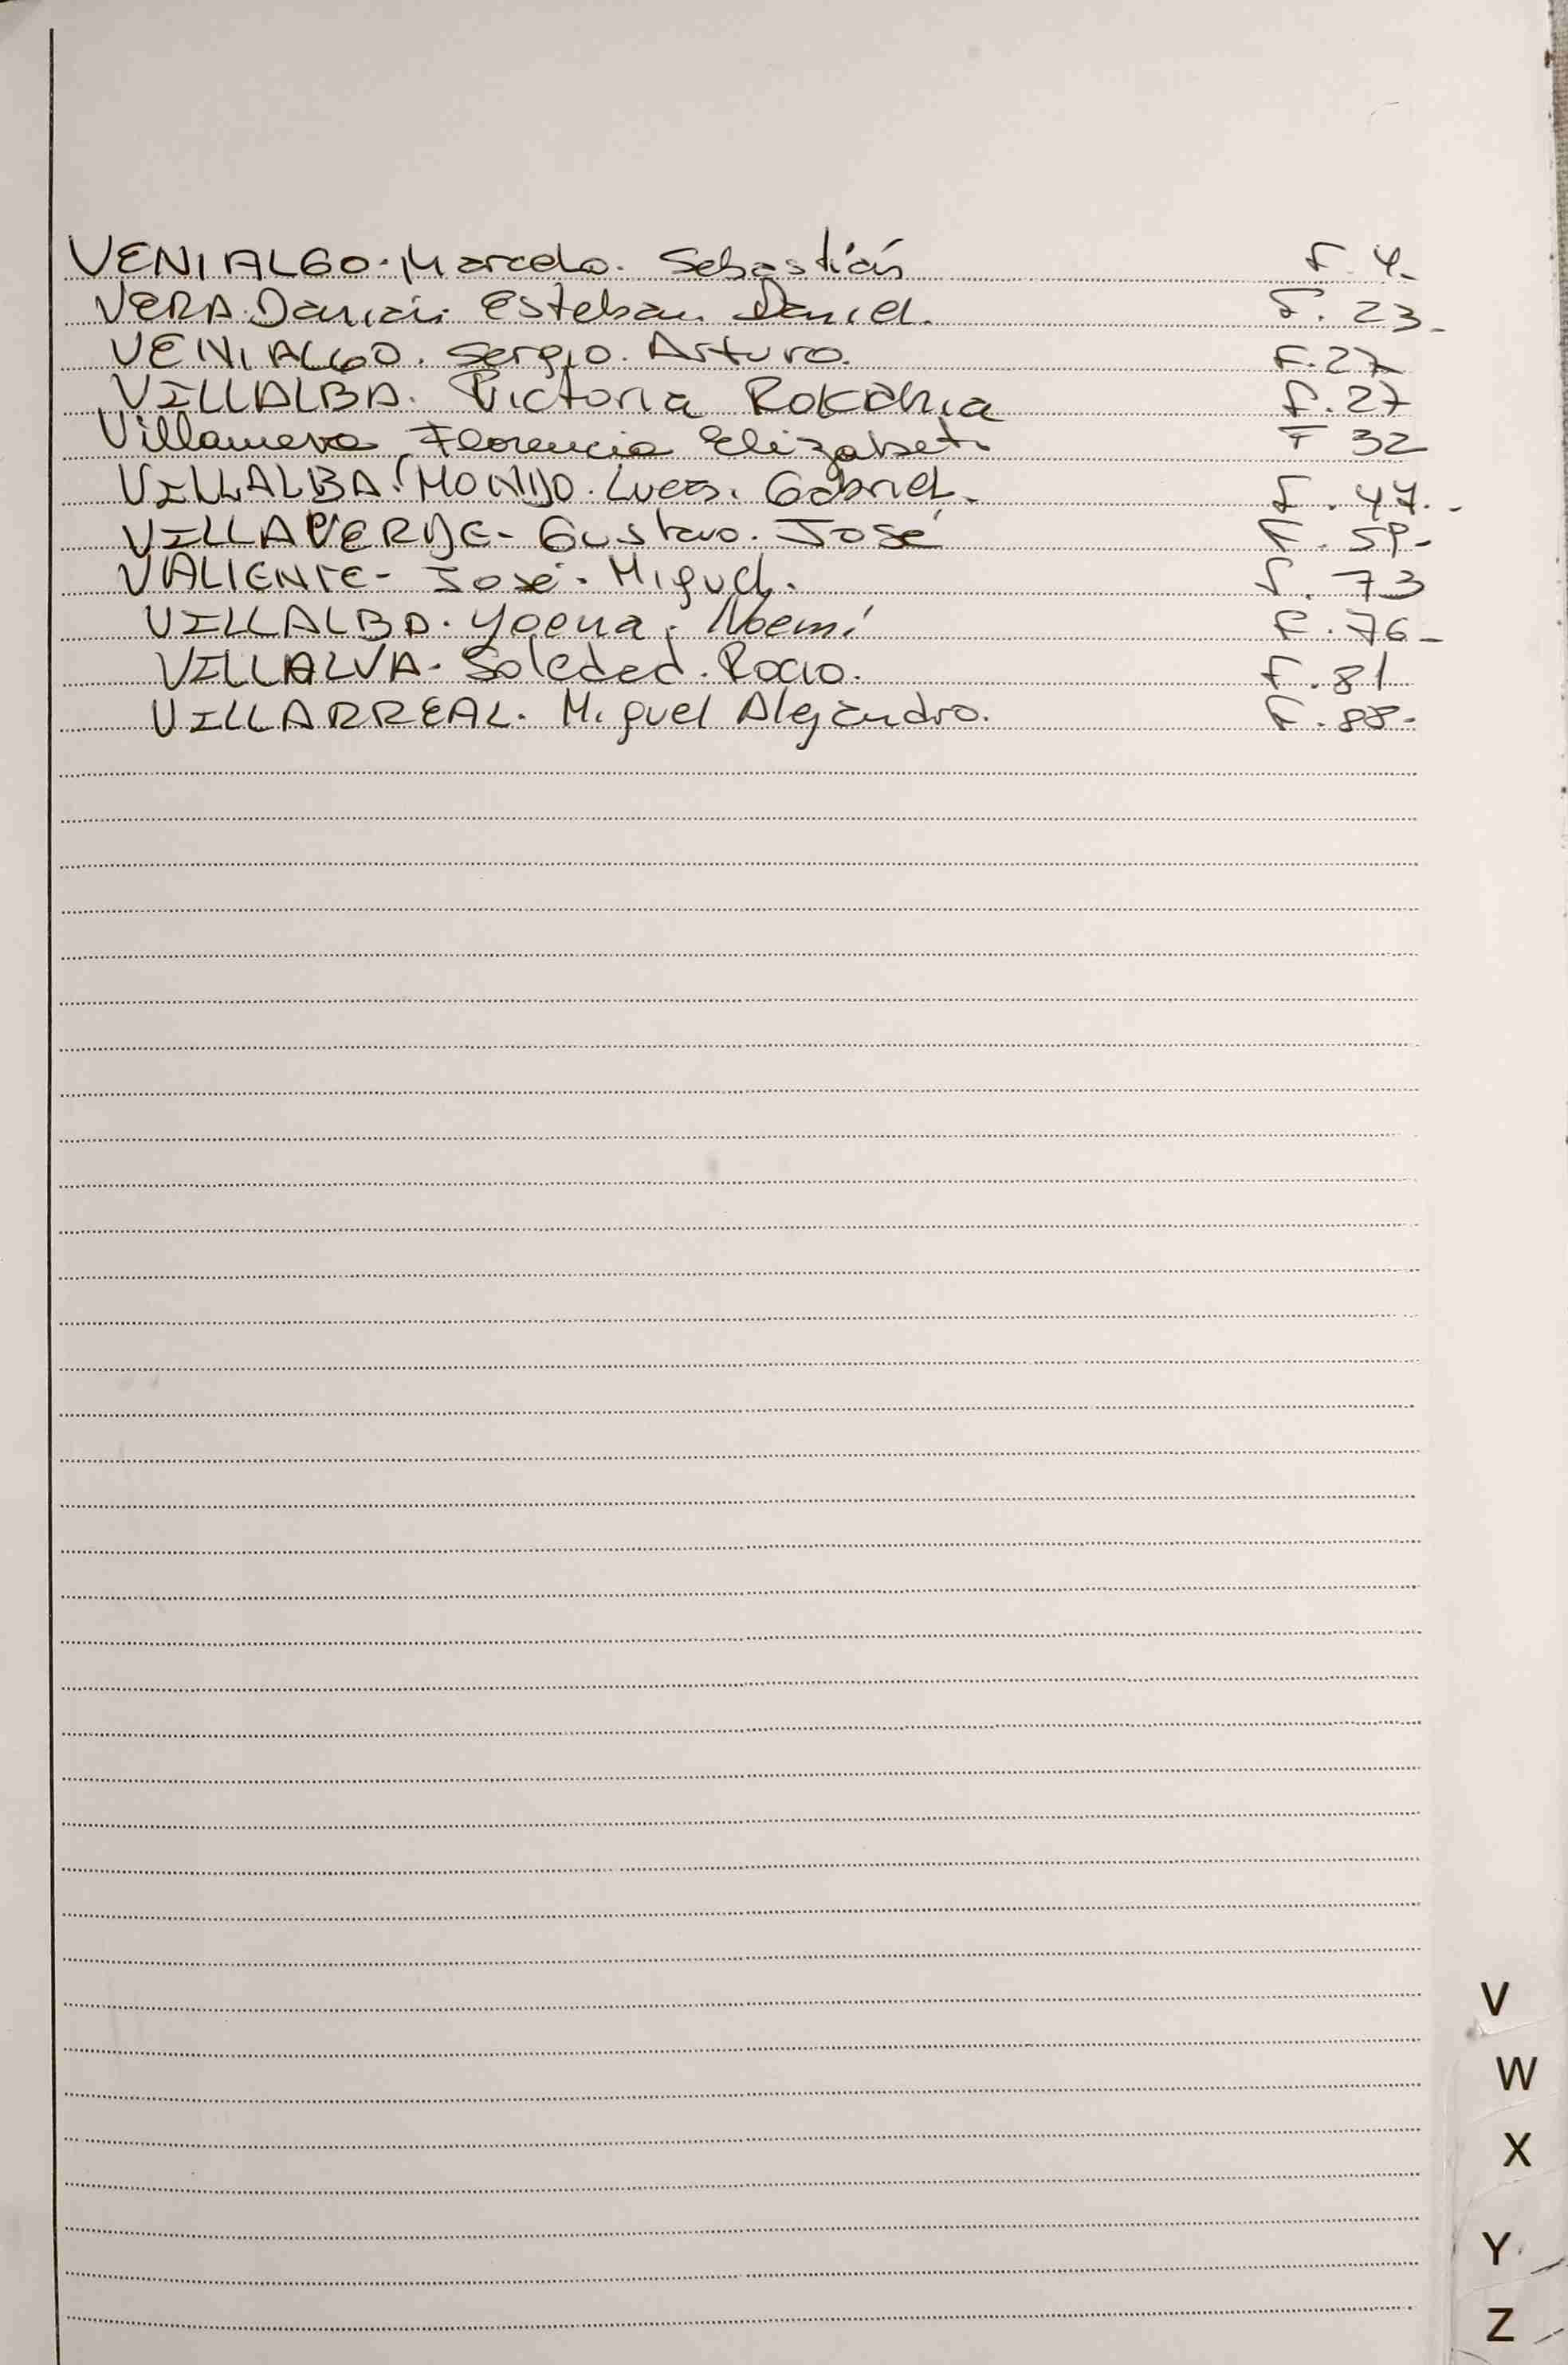 VENIALGO. Marcelo. Sebastián F. 4.
VERA. Damián Esteban Daniel. F. 23-
VENIALGO. Sergio. Arturo. F. 27
VILLALBA. Victoria Rokahia F. 27
Villanueva, Florencia Elizabet. F 32
VILLALBA. MONIJO. Lucas. Gabriel. F. 47.-
VILLAVERDE- Gustavo. José F. 59-
VALIENTE- José. Miguel. F. 73
VILLALBA. Yoena. Noemí F. 76-
VILLALVA- Soleded. Rocio. F. 81
VILLARREAL. Miguel Alejandro. F. 88-
V
W
X
Y
Z